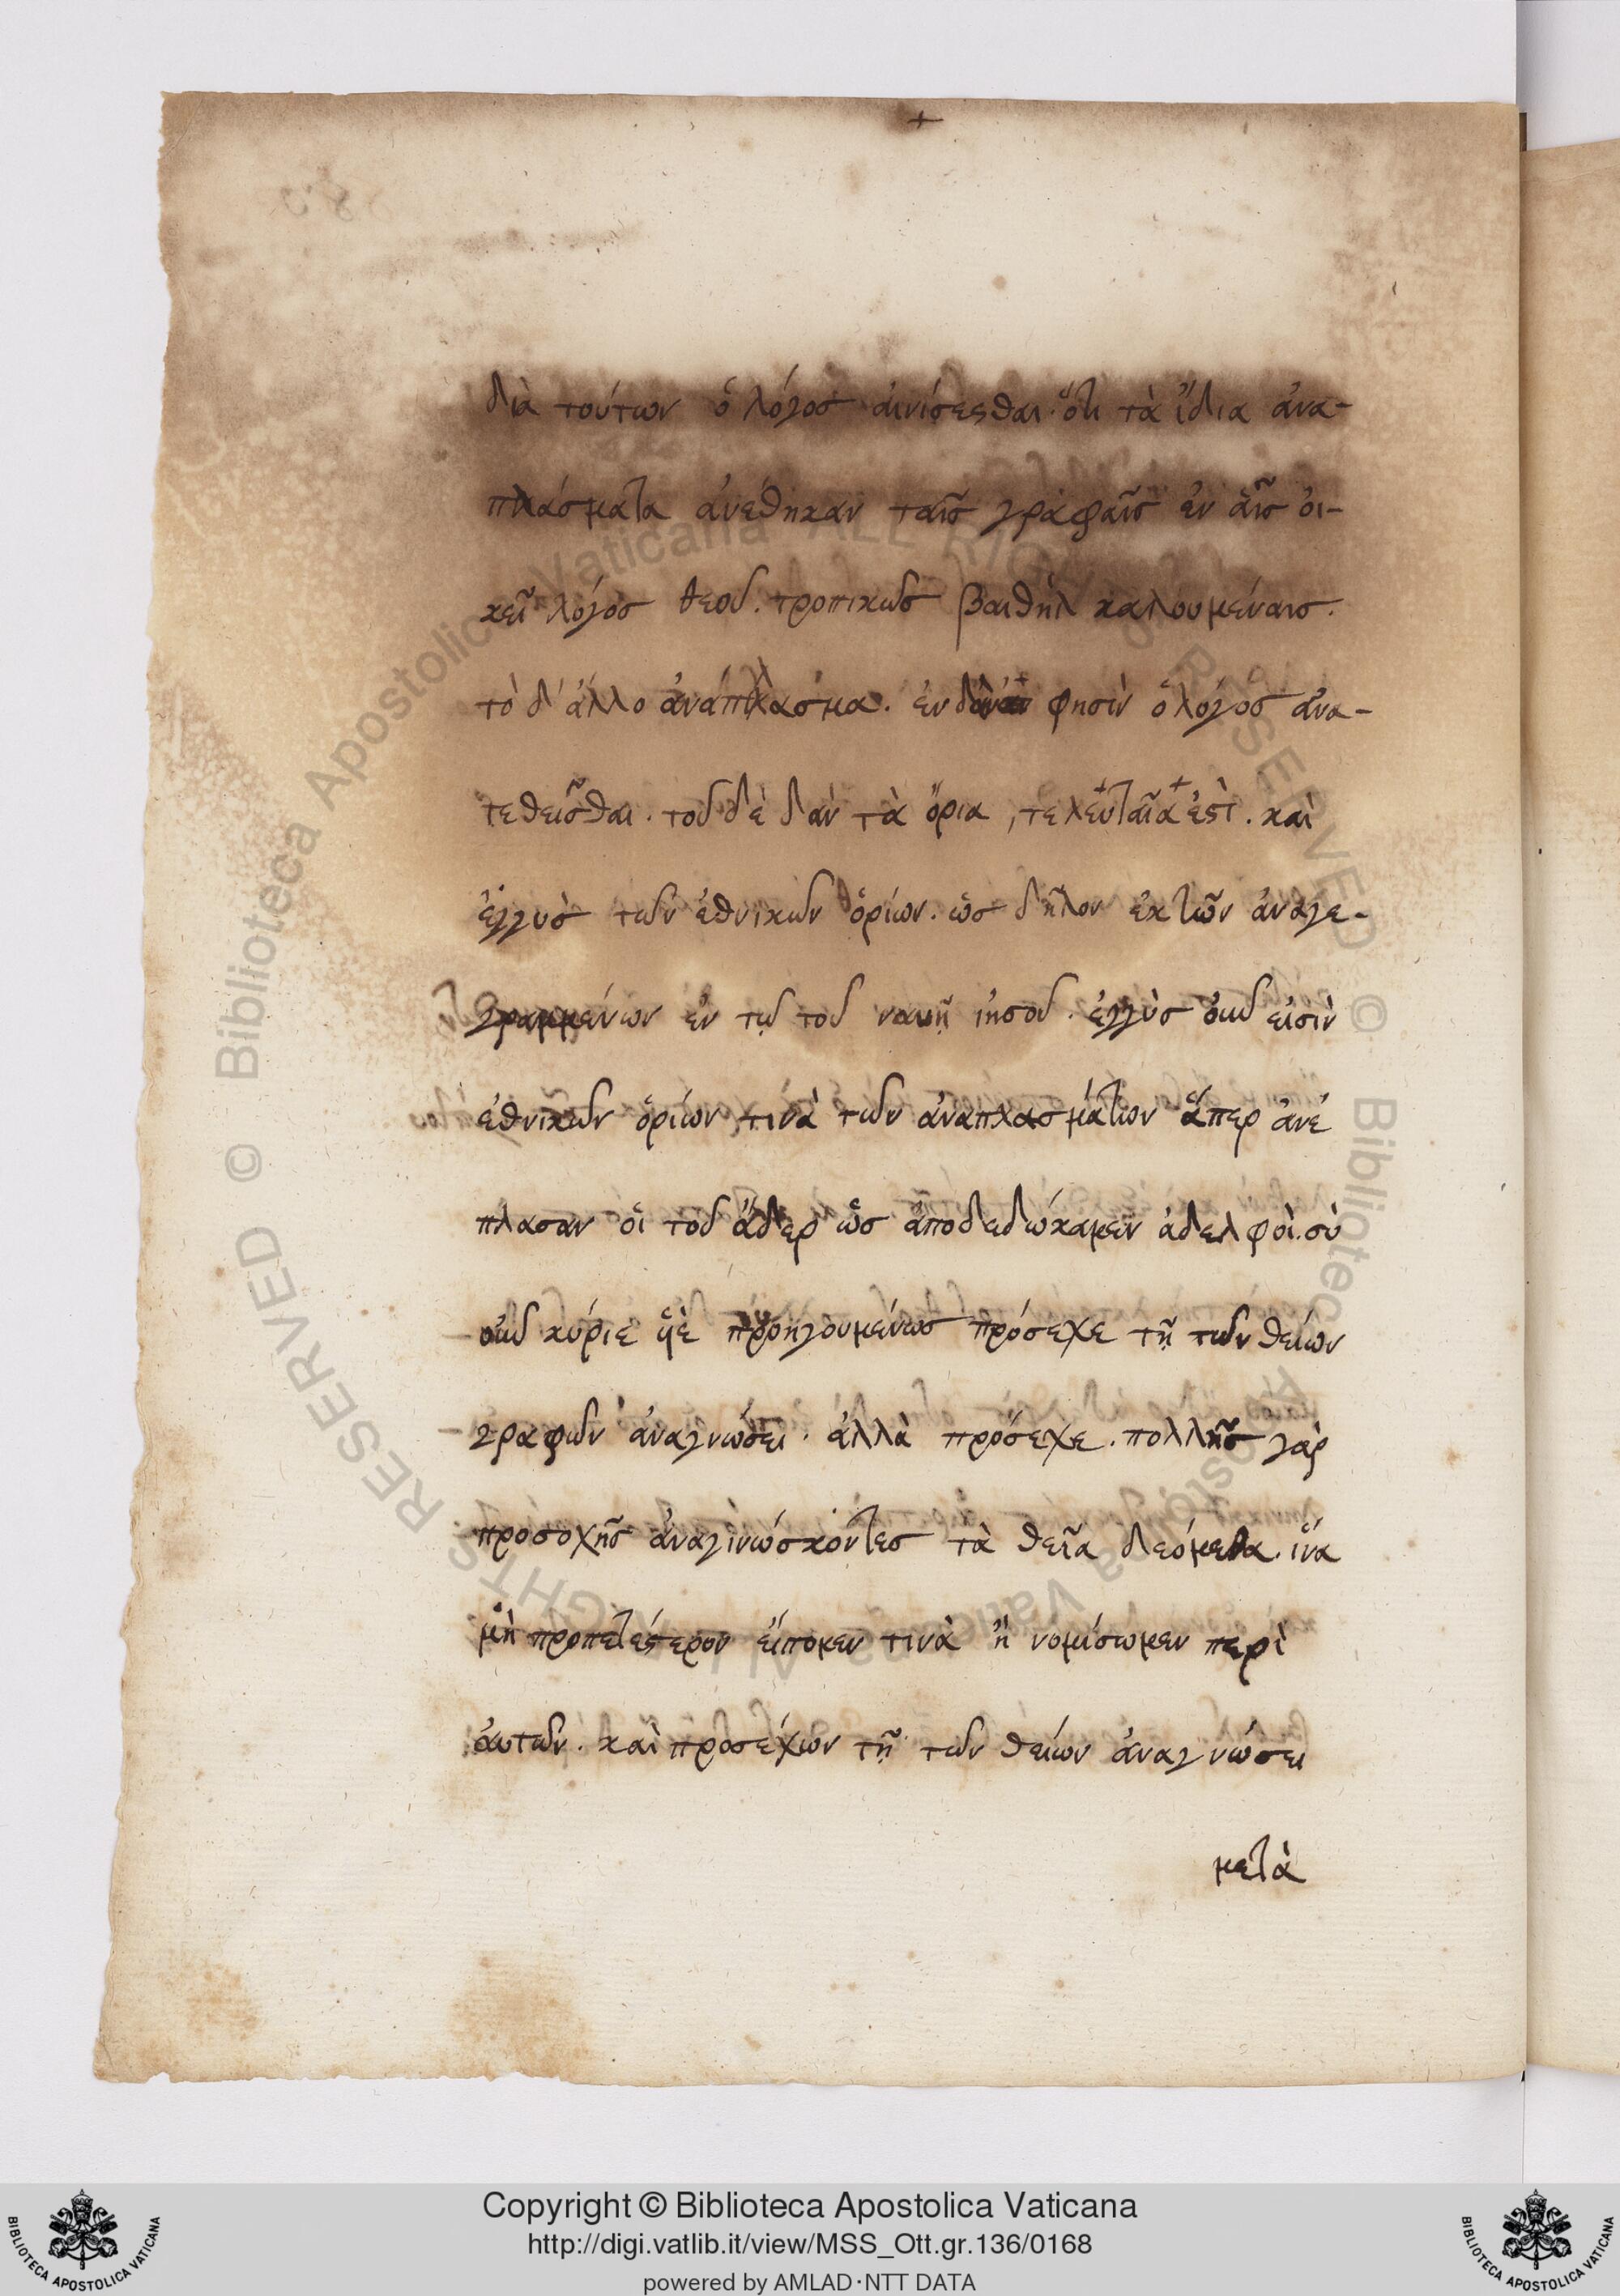 +
διὰ τούτων ὁ λόγος αἰνίσεσθαι. ὅτι τὰ ἴδια ἀνα-
πλάσματα ἀνέθηκαν ταῖς γραφαῖς ἐν αἷς οἰ-
κεῖ λόγος θεοῦ. τροπικῶς βαιθὴλ καλουμέναις.
τὸ δ' ἄλλο ἀνάπλασμα. ἐν δὰν φησὶν ὁ λόγος ἀνα-
τεθεῖσθαι. τοῦ δὲ δὰν τὰ ὅρια, τελευταῖα ἐστὶ. καὶ
ἐγγὺς τῶν ἐθνικῶν ὁρίων. ὡς δῆλον ἐκ τῶν ἀναγε-
γραμμένων ἐν τῷ τοῦ ναυῆ ἰησοῦ. ἐγγὺς οὖν εἰσὶν
ἐθνικῶν ὁρίων τινὰ τῶν ἀναπλασμάτων ἅπερ ἀνέ
πλασαν οἱ τοῦ ἄδερ ὡς ἀποδεδώκαμεν ἀδελφοὶ. σὺ
οὖν κύριε υἱὲ προηγουμένως πρόσεχε τῇ τῶν θείων
γραφῶν ἀναγνώσει. ἀλλὰ πρόσεχε. πολλῆς γὰρ
προσοχῆς ἀναγινώσκοντες τὰ θεῖα δεόμεθα. ἵνα
μὴ προπετέστερον εἴπομεν τινὰ ἢ νομίσωμεν περὶ
αὐτῶν. καὶ προσέχων τῇ τῶν θείων ἀναγνώσει
μετὰ
© Biblioteca Apostolica Vaticana ALL RIGHTS RESERVED © Biblioteca Apostolica Vaticana ALL RIGHTS RESERVED
BIBLIOTECA APOSTOLICA VATICANA
Copyright © Biblioteca Apostolica Vaticana
http://digi.vatlib.it/view/MSS_Ott.gr.136/0168
powered by AMLAD·NTT DATA
BIBLIOTECA APOSTOLICA VATICANA